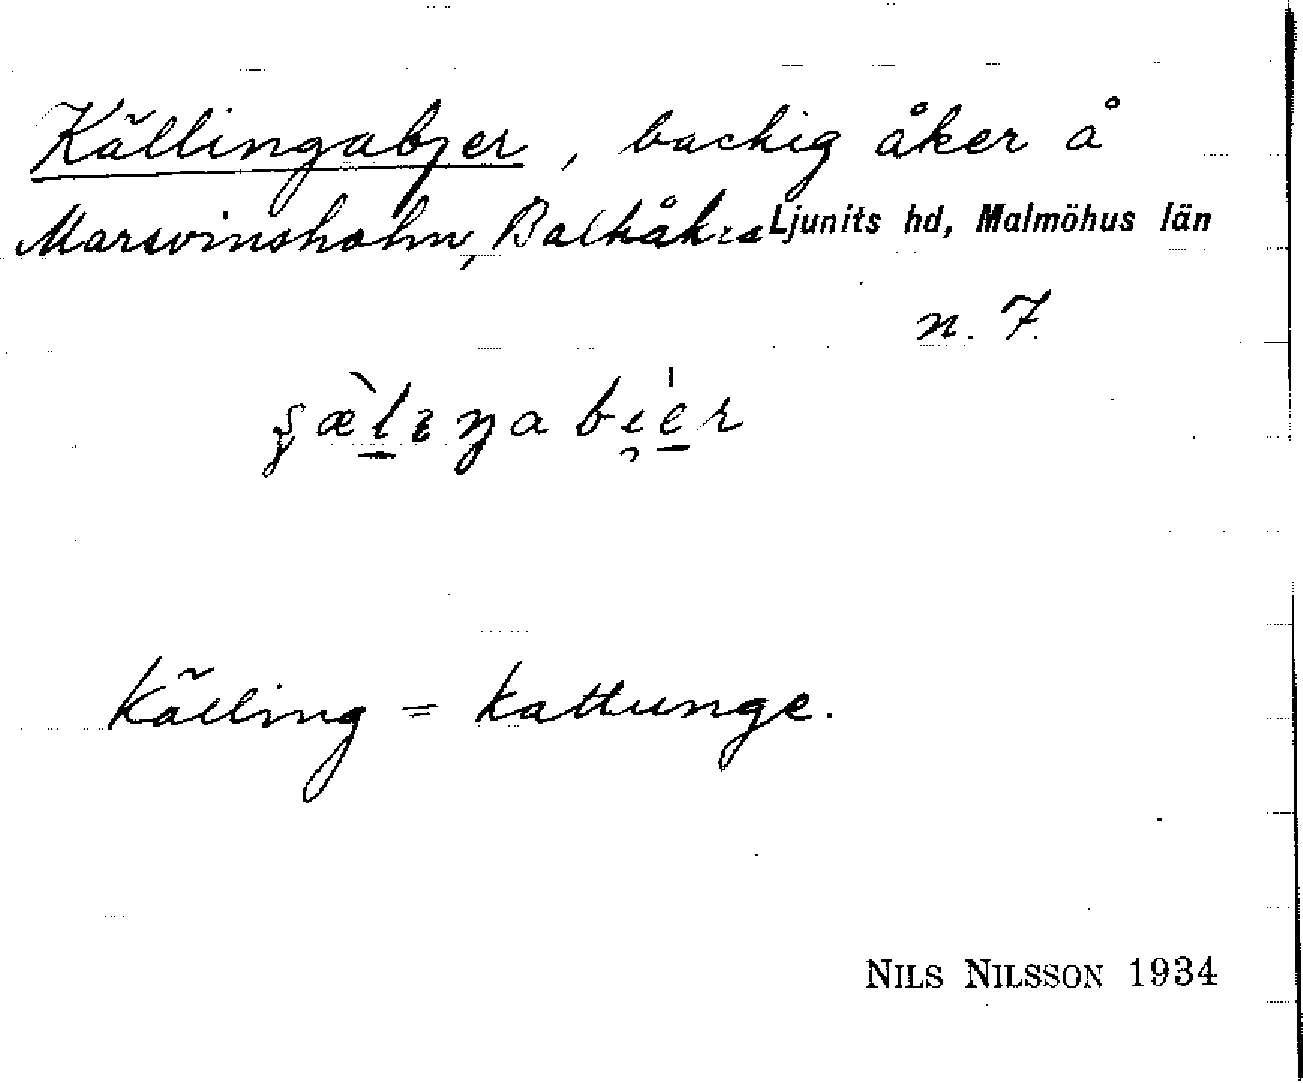 Källingabjer, backig åker å
Marsvinsholm, Balkåkra Ljunits hd, Malmöhus län
n. 7.
Källing = kattunge.
NILS NILSSON 1934